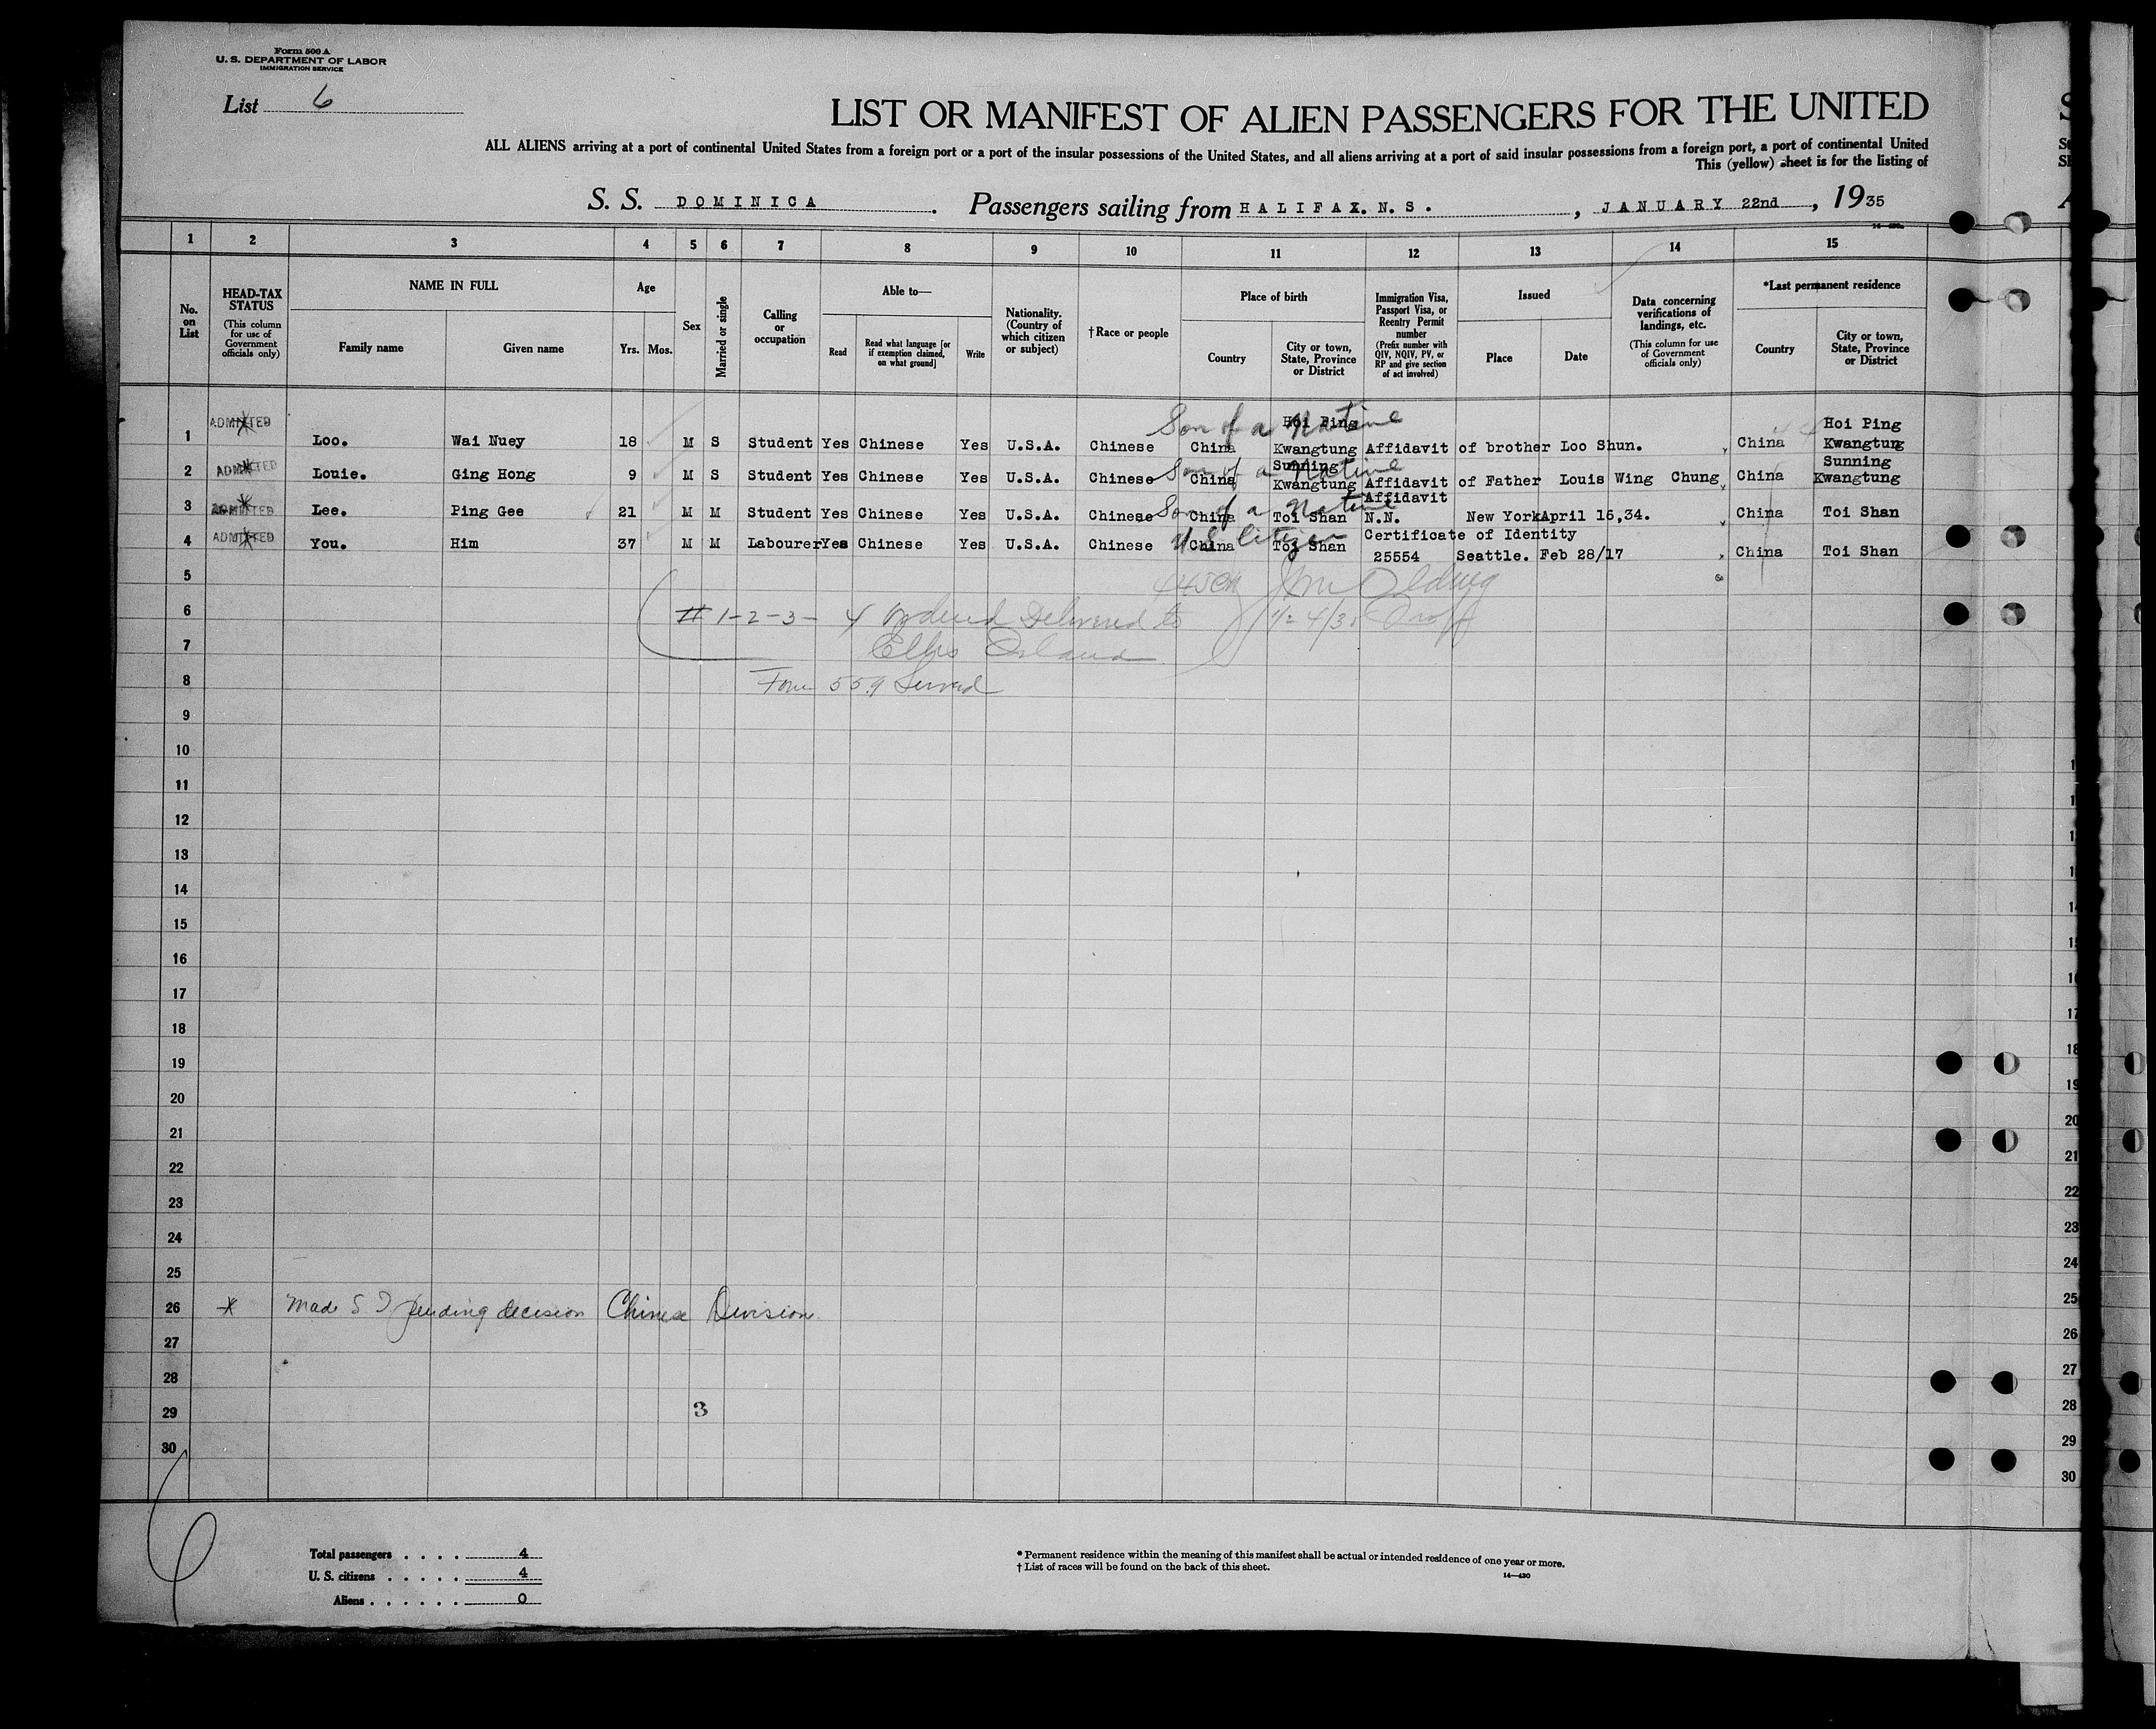 Form 500 A
U. S. DEPARTMENT OF LABOR
IMMIGRATION SERVICE
List 6
LIST OR MANIFEST OF ALIEN PASSENGERS FOR THE UNITED
ALL ALIENS arriving at a port of continental United States from a foreign port or a port of the insular possessions of the United States, and all aliens arriving at a port of said insular possessions from a foreign port, a port of continental United
This (yellow) sheet is for the listing of
S. S. DOMINICA. Passengers sailing from HALIFAX. N. S. , JANUARY 22nd , 1935
1 2 3 4 5 6 7 8 9 10 11 12 13 14 15
No. on List
HEAD-TAX STATUS (This column for use of Government officials only)
NAME IN FULL
Family name
Given name
Age
Yrs. Mos.
Sex
Married or single
Calling or occupation
Able to—
Read
Read what language [or if exemption claimed, on what ground]
Write
Nationality. (Country of which citizen or subject)
†Race or people
Place of birth
Country
City or town, State, Province or District
Immigration Visa, Passport Visa, or Reentry Permit number (Prefix number with QIV, NQIV, PV, or RP and give section of act involved)
Issued
Place
Date
Data concerning verifications of landings, etc. (This column for use of Government officials only)
*Last permanent residence
Country
City or town, State, Province or District
Son of a Native
1 ADMITTED Loo. Wai Nuey 18 M S Student Yes Chinese Yes U.S.A. Chinese China Hoi Ping Kwangtung Affidavit of brother Loo Shun. China Hoi Ping Kwangtung
Son of a Native
2 ADMITTED Louie. Ging Hong 9 M S Student Yes Chinese Yes U.S.A. Chinese China Sunning Kwangtung Affidavit of Father Louis Wing Chung China Sunning Kwangtung
Son of a Native
3 ADMITTED Lee. Ping Gee 21 M M Student Yes Chinese Yes U.S.A. Chinese China Toi Shan Affidavit N.N. New York April 16,34. China Toi Shan
U S Citizen
4 ADMITTED You. Him 37 M M Labourer Yes Chinese Yes U.S.A. Chinese China Toi Shan Certificate of Identity 25554 Seattle. Feb 28/17 China Toi Shan
5
6 # 1-2-3- 4 ordered Delivered to
7 Ellis Island
8 Form 559 Served
9
10
11
12
13
14
15
16
17
18
19
20
21
22
23
24
25
26 * Made S I pending decision Chinese Division
27
28
29 3
30
Total passengers . . . . 4
U. S. citizens . . . . . 4
Aliens . . . . . . 0
* Permanent residence within the meaning of this manifest shall be actual or intended residence of one year or more.
† List of races will be found on the back of this sheet.
14—430